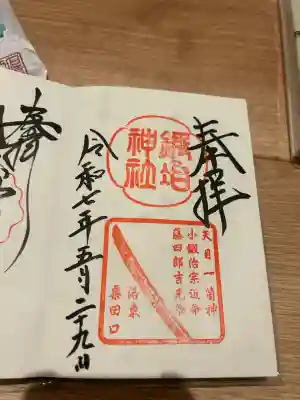 奉拝
鍛冶神社
天目一箇神
小鍛治宗近命
藤四郎吉光命
洛東
粟田口
令和七年五月二十九日
奉拝